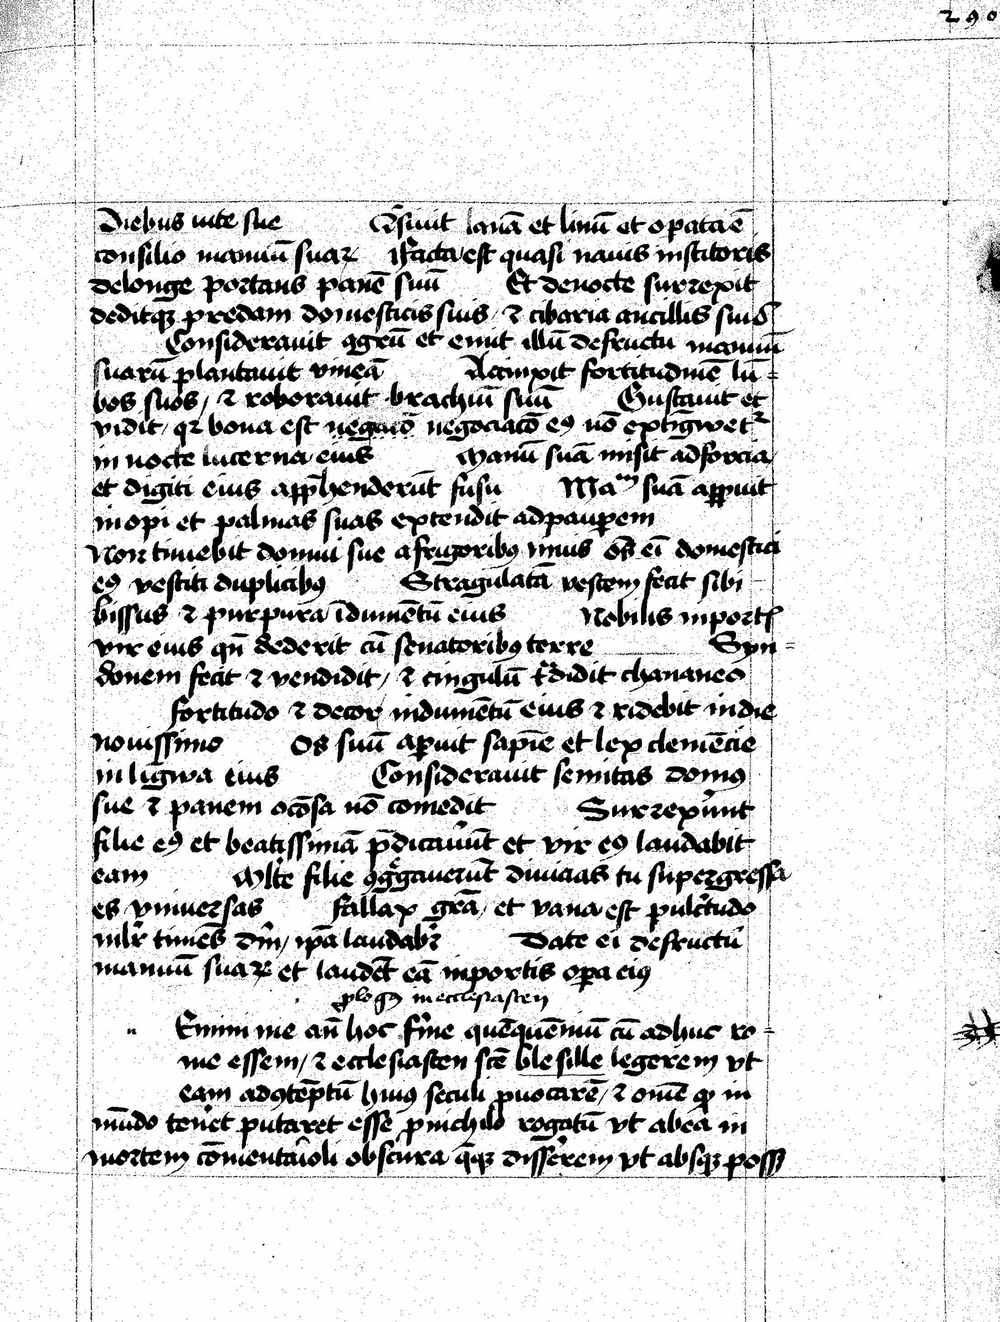 290
Diebus uite sue Q̄siuit lanā et linū et opata ē
consilio manuū suaꝝ Facta est quasi nauis institoris
delonge portans panē suū Et denocte surrexit
deditqꝫ predam domesticis suis / ⁊ cibaria ancillis suis
Considerauit agrū et emit illū defructu manuū
suarū plantauit vineā Accinxit fortitudinē lū-
bos suos / ⁊ roborauit brachiū suū Gustauit et
vidit / qꝛ bona est negaciō negociacō eꝰ nō extīgwetᷣ
in nocte lucerna eius Manū suā misit ad forcia
et digiti eius apꝑhenderūt fusū Maᵐ suā apꝑuit
inopi et palmas suas extendit ad pauꝑem
Non timebit domui sue a frigoribꝰ niuis ōs ei domestici
eꝰ vestiti duplicibꝰ Stragulatā vestem fecit sibi
bissus ⁊ purpura īdumētū eius Nobilis in portꝭ
vir eius qn̄ sederit cū senatoribꝰ terre Syn-
donem fecit ⁊ vendidit / ⁊ cingulū tᷓdidit chananeo
fortitudo ⁊ decor indumētū eius ⁊ ridebit in die
nouissimo Os suū aꝑuit sapīe et lex clemēcie
in ligwa eius Considerauit semitas domꝰ
sue ⁊ panem ocōsa nō comedit Surrexerūt
filie eꝰ et beatissimā p̄dicauerūt et vir eꝰ laudabit
eam Mlte filie ꝯgᷓgauerūt diuicias tu supergressa
es vniuersas Fallax grā / et vana est pulcᷣtudo
mlr̄ timēs dm̄ / ip̄a laudabᷣ Date ei defructū
manuū suaꝝ et laudēt eā in portis oꝑa eiꝰ
ꝓlogꝰ in ecclesiasten
Emini me an̄ hoc ferme quēquēniū cū adhuc ro-
me essem / ⁊ ecclesiasten scē blesille legerem vt
eam ad ꝯtēptū huiꝰ seculi ꝓuocarē / ⁊ omē qd in
mūdo cerneret putaret esse ꝓ nichilo rogatū vt ab ea in
mortem cōmentarioli obscura qqꝫ dissererem vt absqꝫ possꝫ